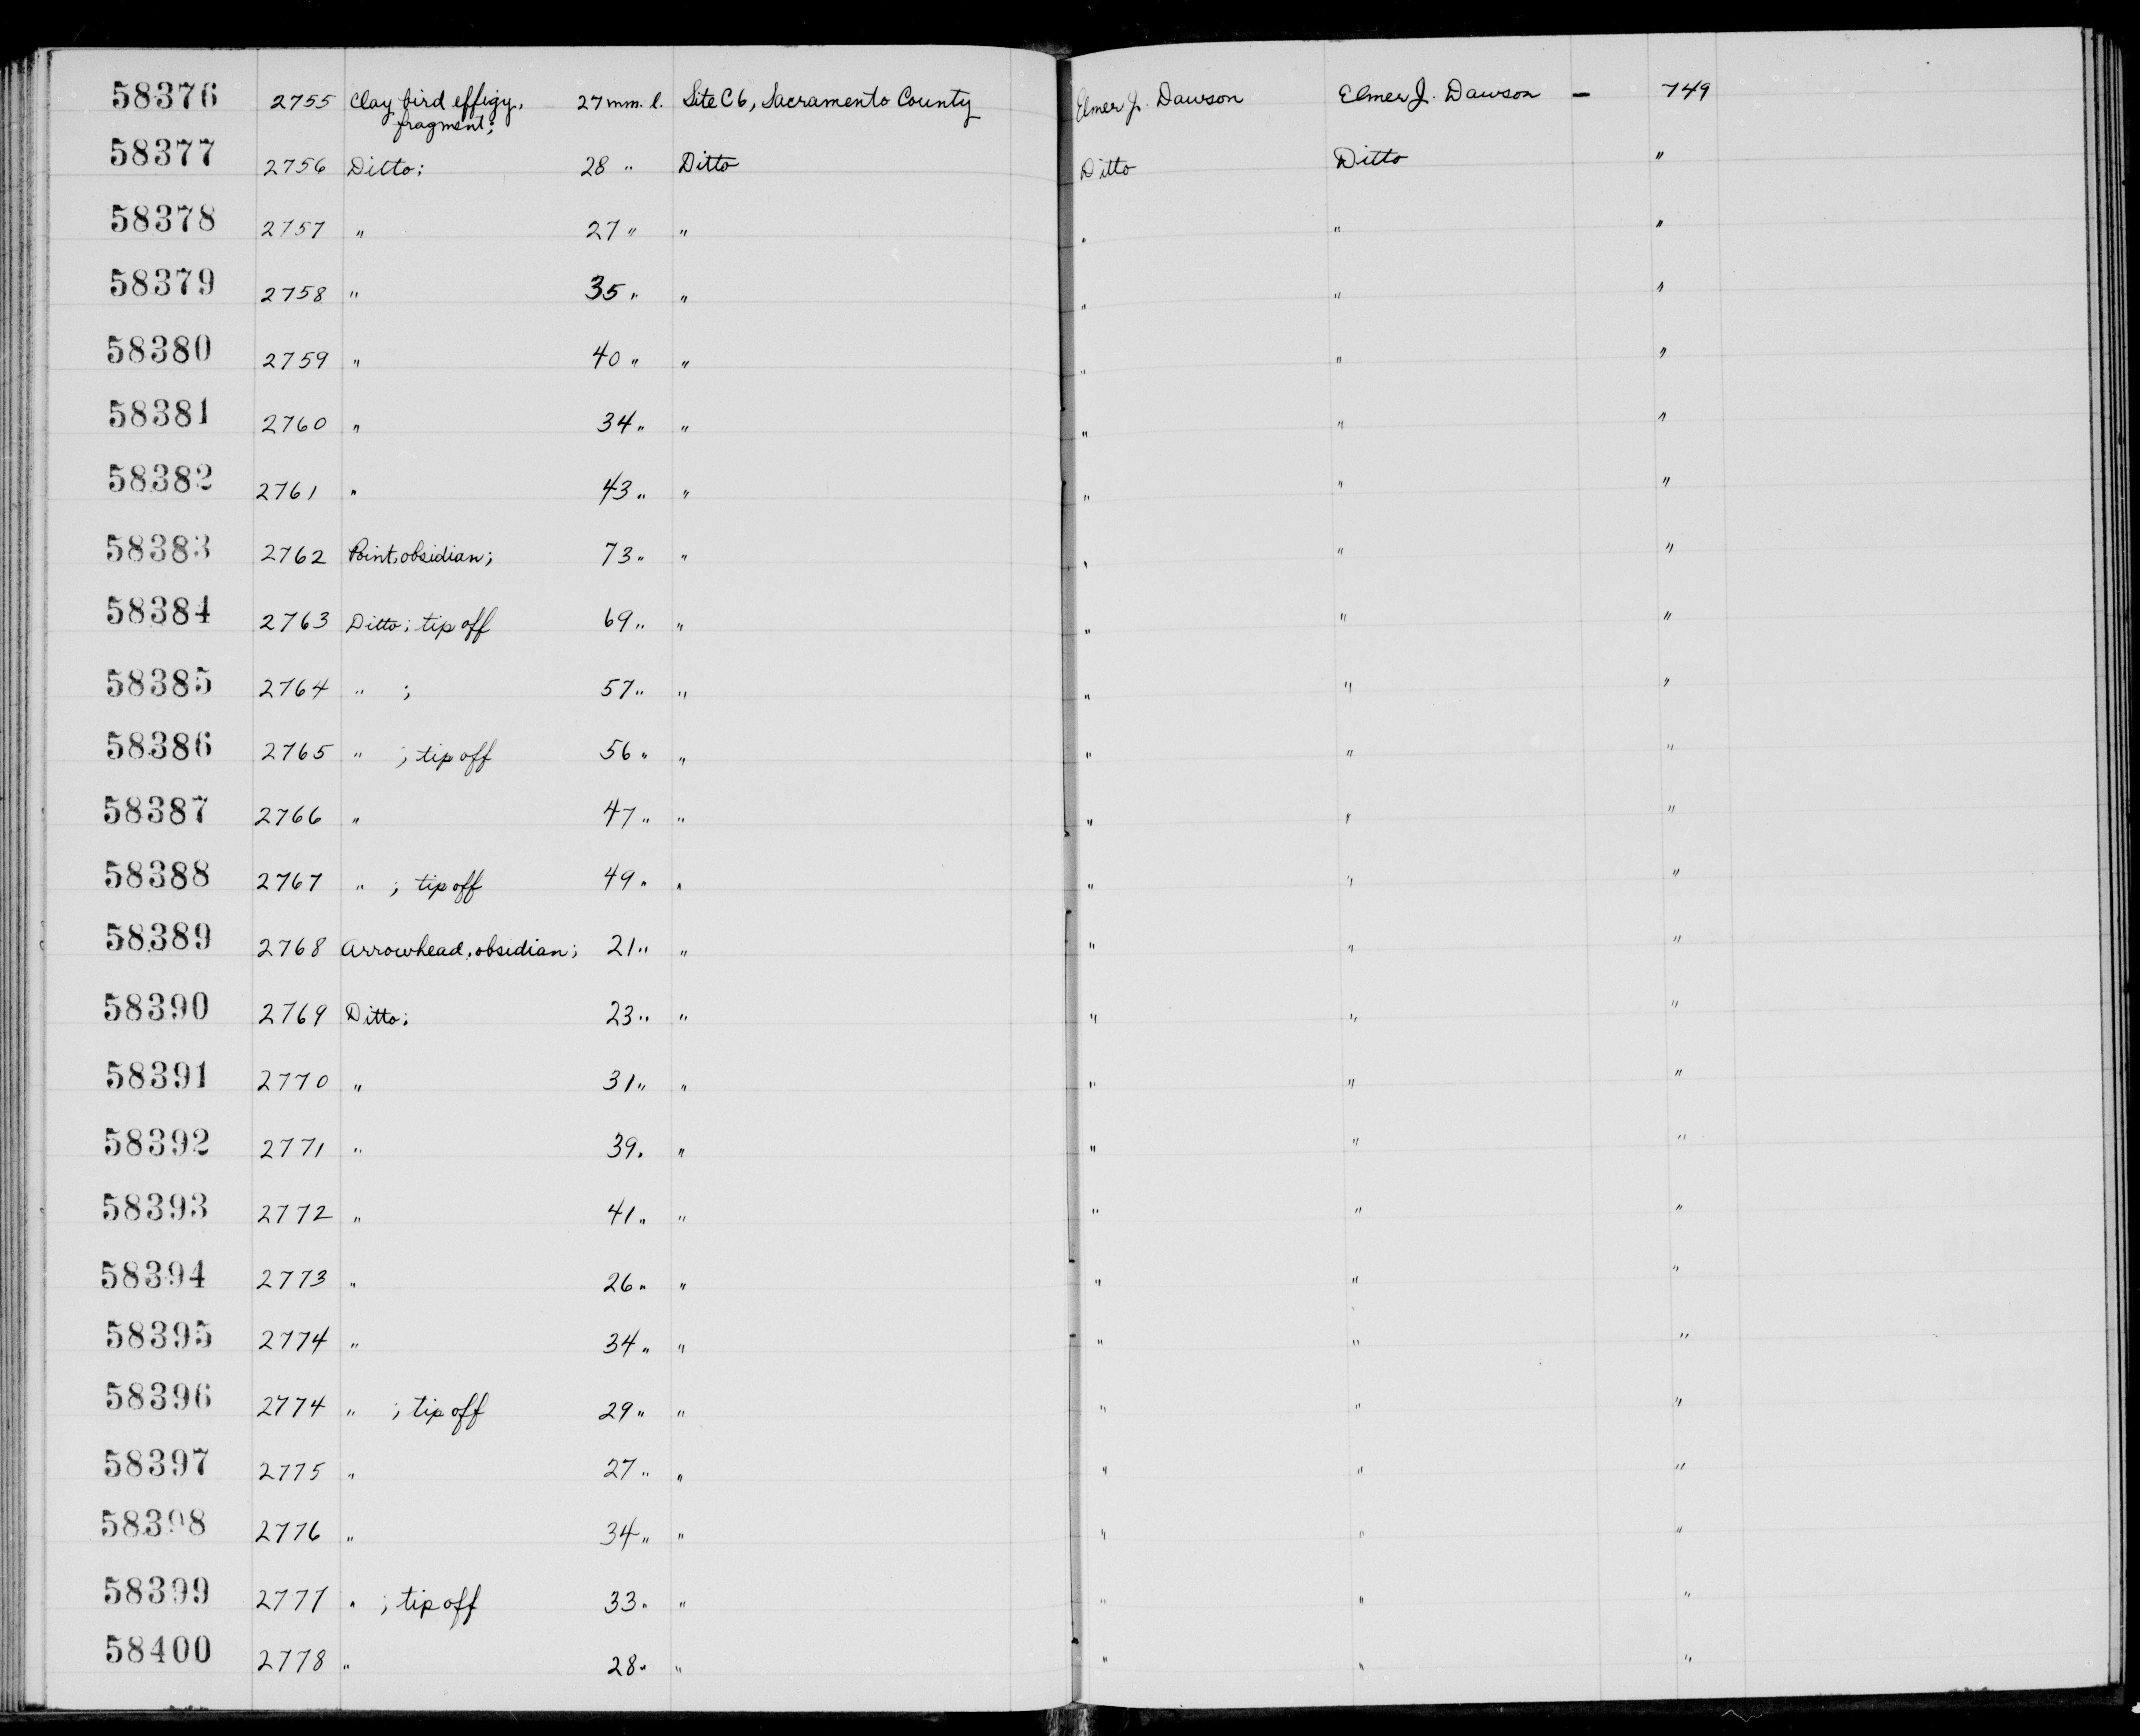 58376 2755 Clay bird effigy, 27 mm. l. Site C6, Sacramento County Elmer J. Dawson Elmer J. Dawson — 749
fragment;
58377 2756 Ditto; 28 " Ditto Ditto Ditto "
58378 2757 " 27 " " " " "
58379 2758 " 35 " " " " "
58380 2759 " 40 " " " " "
58381 2760 " 34 " " " " "
58382 2761 " 43 " " " " "
58383 2762 Point, obsidian; 73 " " " " "
58384 2763 Ditto; tip off 69 " " " " "
58385 2764 " ; 57 " " " " "
58386 2765 " ; tip off 56 " " " " "
58387 2766 " 47 " " " " "
58388 2767 " ; tip off 49 " " " " "
58389 2768 Arrowhead, obsidian; 21 " " " " "
58390 2769 Ditto; 23 " " " " "
58391 2770 " 31 " " " " "
58392 2771 " 39 " " " " "
58393 2772 " 41 " " " " "
58394 2773 " 26 " " " " "
58395 2774 " 34 " " " " "
58396 2774 " ; tip off 29 " " " " "
58397 2775 " 27 " " " " "
58398 2776 " 34 " " " " "
58399 2777 " ; tip off 33 " " " " "
58400 2778 " 28 " " " " "